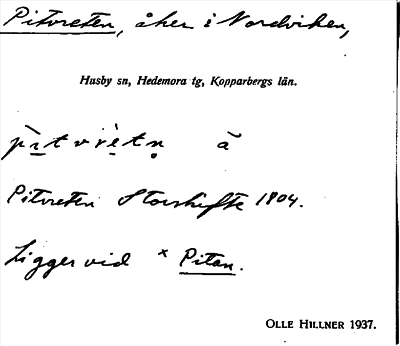 Pitvreten, åker i Nordviken,
Husby sn, Hedemora tg, Kopparbergs län.
pìtvrètn ā
Pitvreten Storskifte 1804.
Ligger vid × Pitan.
OLLE HILLNER 1937.